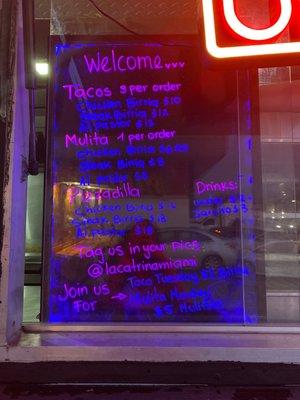 Welcome
Tacos 3 per order
Chicken Birria $10
Steak Birria $12
Al pastor $12
Mulita 1 per order
Chicken Birria
Steak Birria $8
Al pastor $8
Chicken Birria
Steak Birria $18
Al pastor $18
Drinks:
Jarrito $3
Tag us in your pics
@lacatrinamiami
Join us
For
Taco Tuesday $2 Birria
Mulita Monday
$5 Mulitas